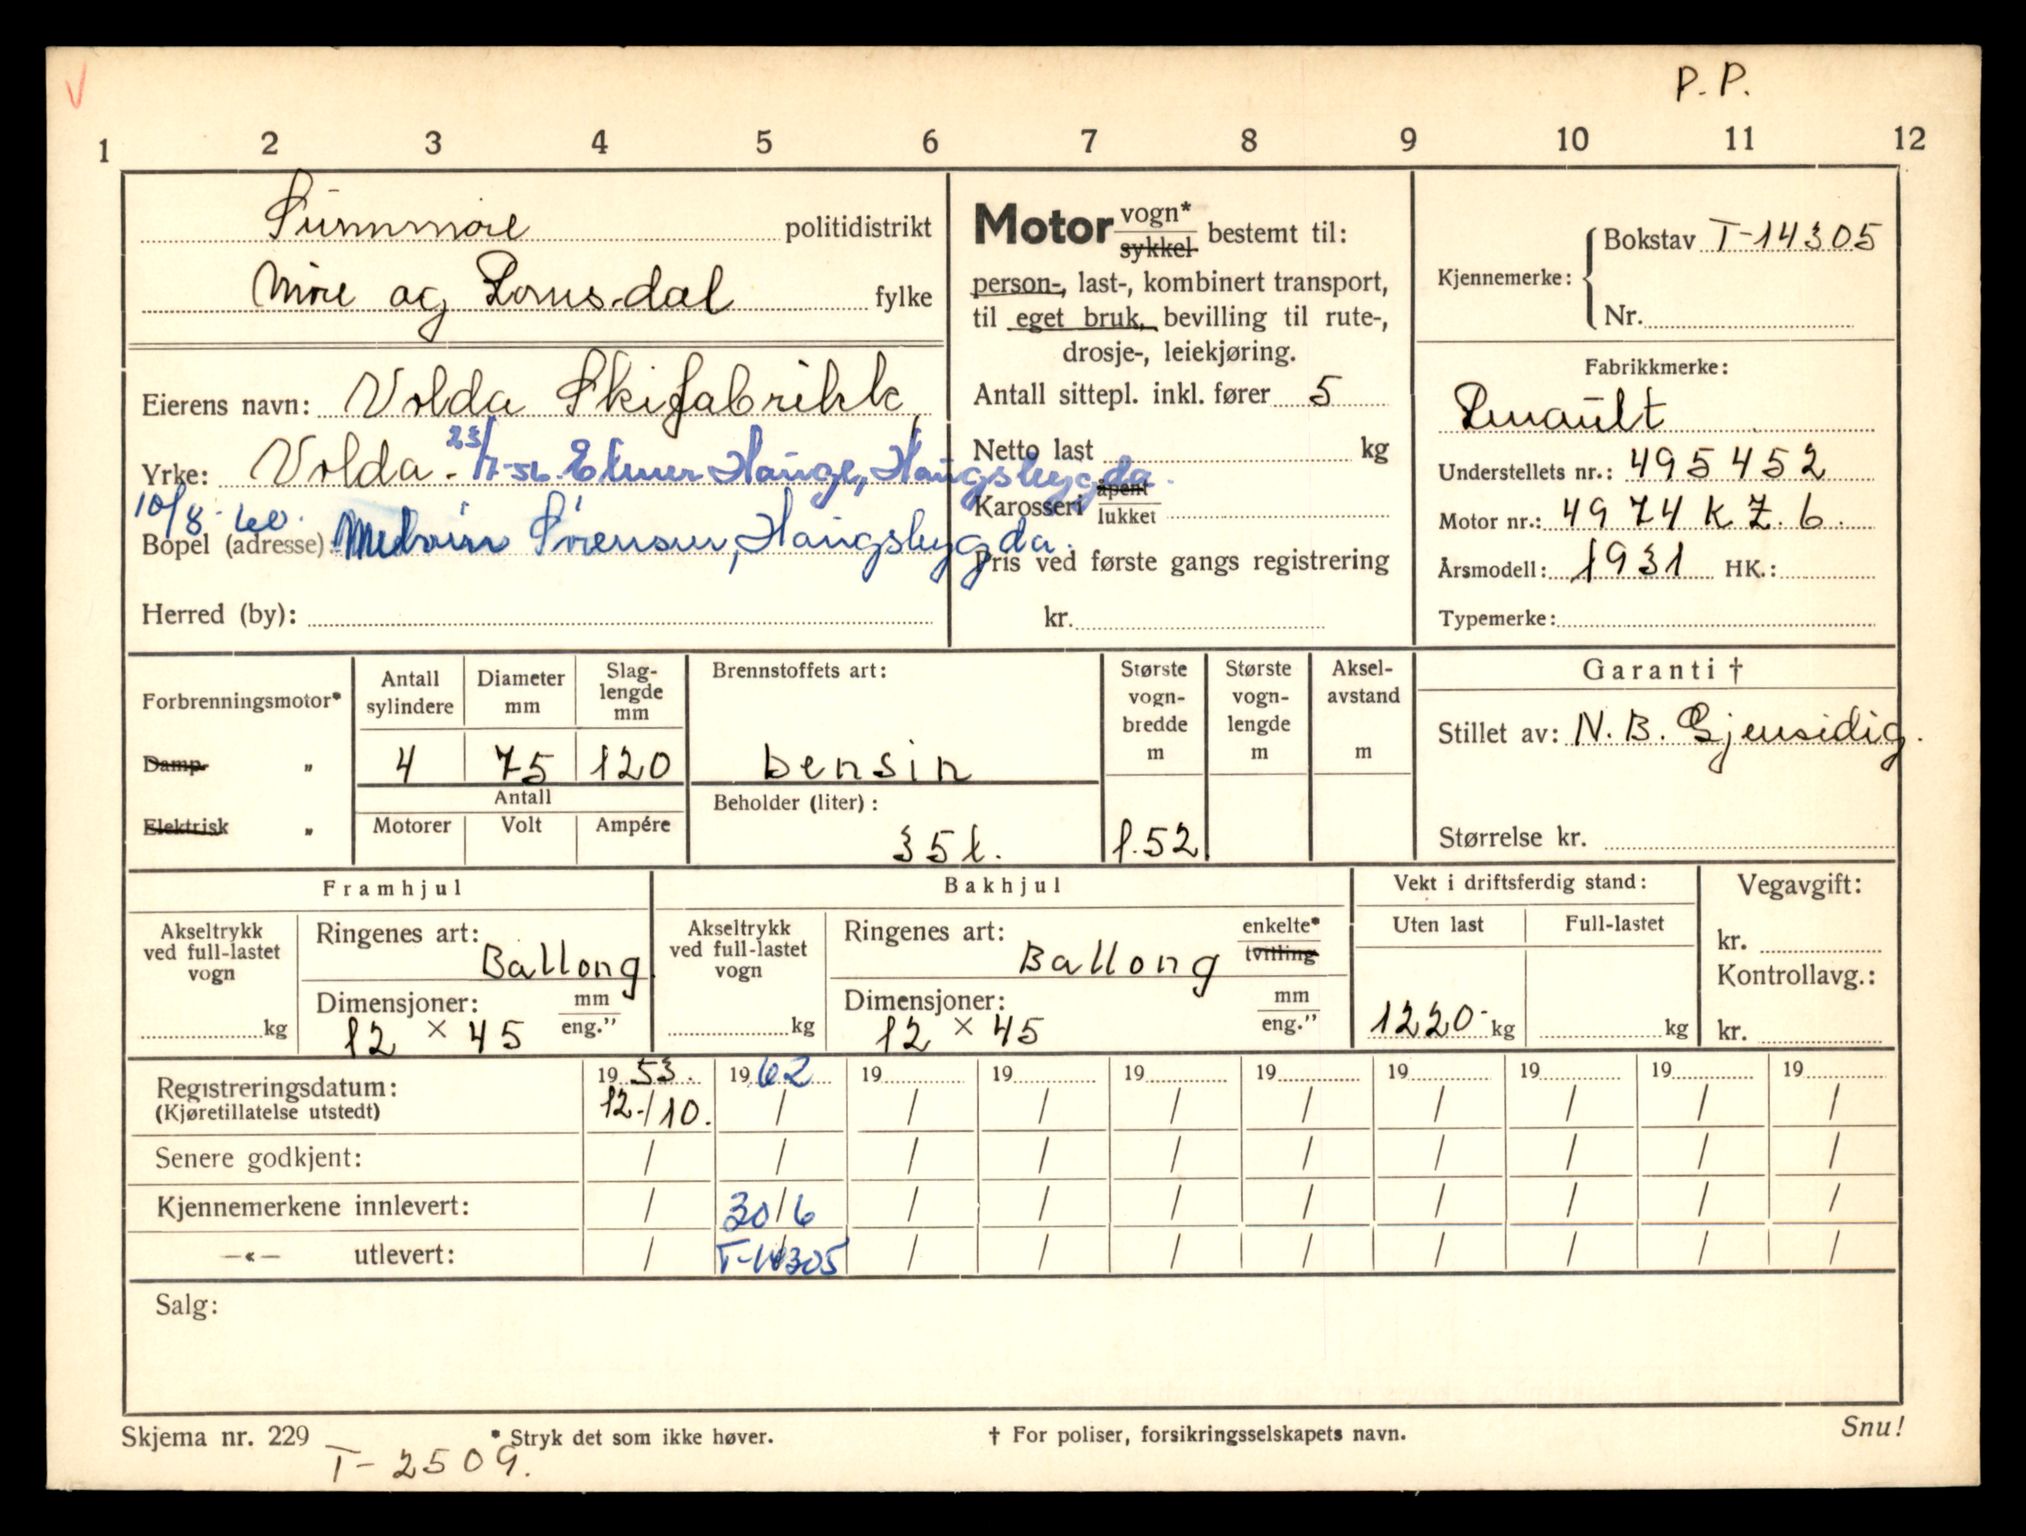 V
P. P.
1 2 3 4 5 6 7 8 9 10 11 12
Sunnmøre politidistrikt
Møre og Romsdal fylke
Eierens navn: Volda Skifabrikk,
Yrke: Volda. 23/7-56. Elmer Hauge, Haugsbygda.
10/8-60.
Bopel (adresse): Sørensen, Haugsbygda.
Herred (by):
Motor vogn* / sykkel bestemt til:
person-, last-, kombinert transport,
til eget bruk, bevilling til rute-,
drosje-, leiekjøring.
Antall sittepl. inkl. fører 5
Netto last kg
Karosseri åpent / lukket
Pris ved første gangs registrering
kr.
Kjennemerke: Bokstav T-14305
Nr.
Fabrikkmerke:
Renault
Understellets nr.: 495452
Motor nr.: 4974 K Z. 6.
Årsmodell: 1931 HK.:
Typemerke:
Forbrenningsmotor*
Damp. "
Elektrisk "
Antall sylindere
Diameter mm
Slaglengde mm
4 75 120
Antall
Motorer Volt Ampére
Brennstoffets art:
bensin
Beholder (liter):
35 l.
Største vogn-bredde m
1.52
Største vogn-lengde m
Aksel-avstand m
Garanti †
Stillet av: N. B. Gjensidig.
Størrelse kr.
Framhjul
Akseltrykk ved full-lastet vogn
kg
Ringenes art: Ballong
Dimensjoner: mm / eng."
12 × 45
Bakhjul
Akseltrykk ved full-lastet vogn
kg
Ringenes art: enkelte* / tvilling
Ballong
Dimensjoner: mm / eng."
12 × 45
Vekt i driftsferdig stand:
Uten last Full-lastet
1220- kg kg
Vegavgift:
kr.
Kontrollavg.:
kr.
Registreringsdatum: 19 53. 19 62 19 19 19 19 19 19 19 19
(Kjøretillatelse utstedt) 12./10. / / / / / / / / /
Senere godkjent: / / / / / / / / / /
Kjennemerkene innlevert: / 30/6 / / / / / / / /
—«— utlevert: / T-14305 / / / / / / / /
Salg:
Skjema nr. 229 * Stryk det som ikke høver. † For poliser, forsikringsselskapets navn. Snu!
T- 2509.